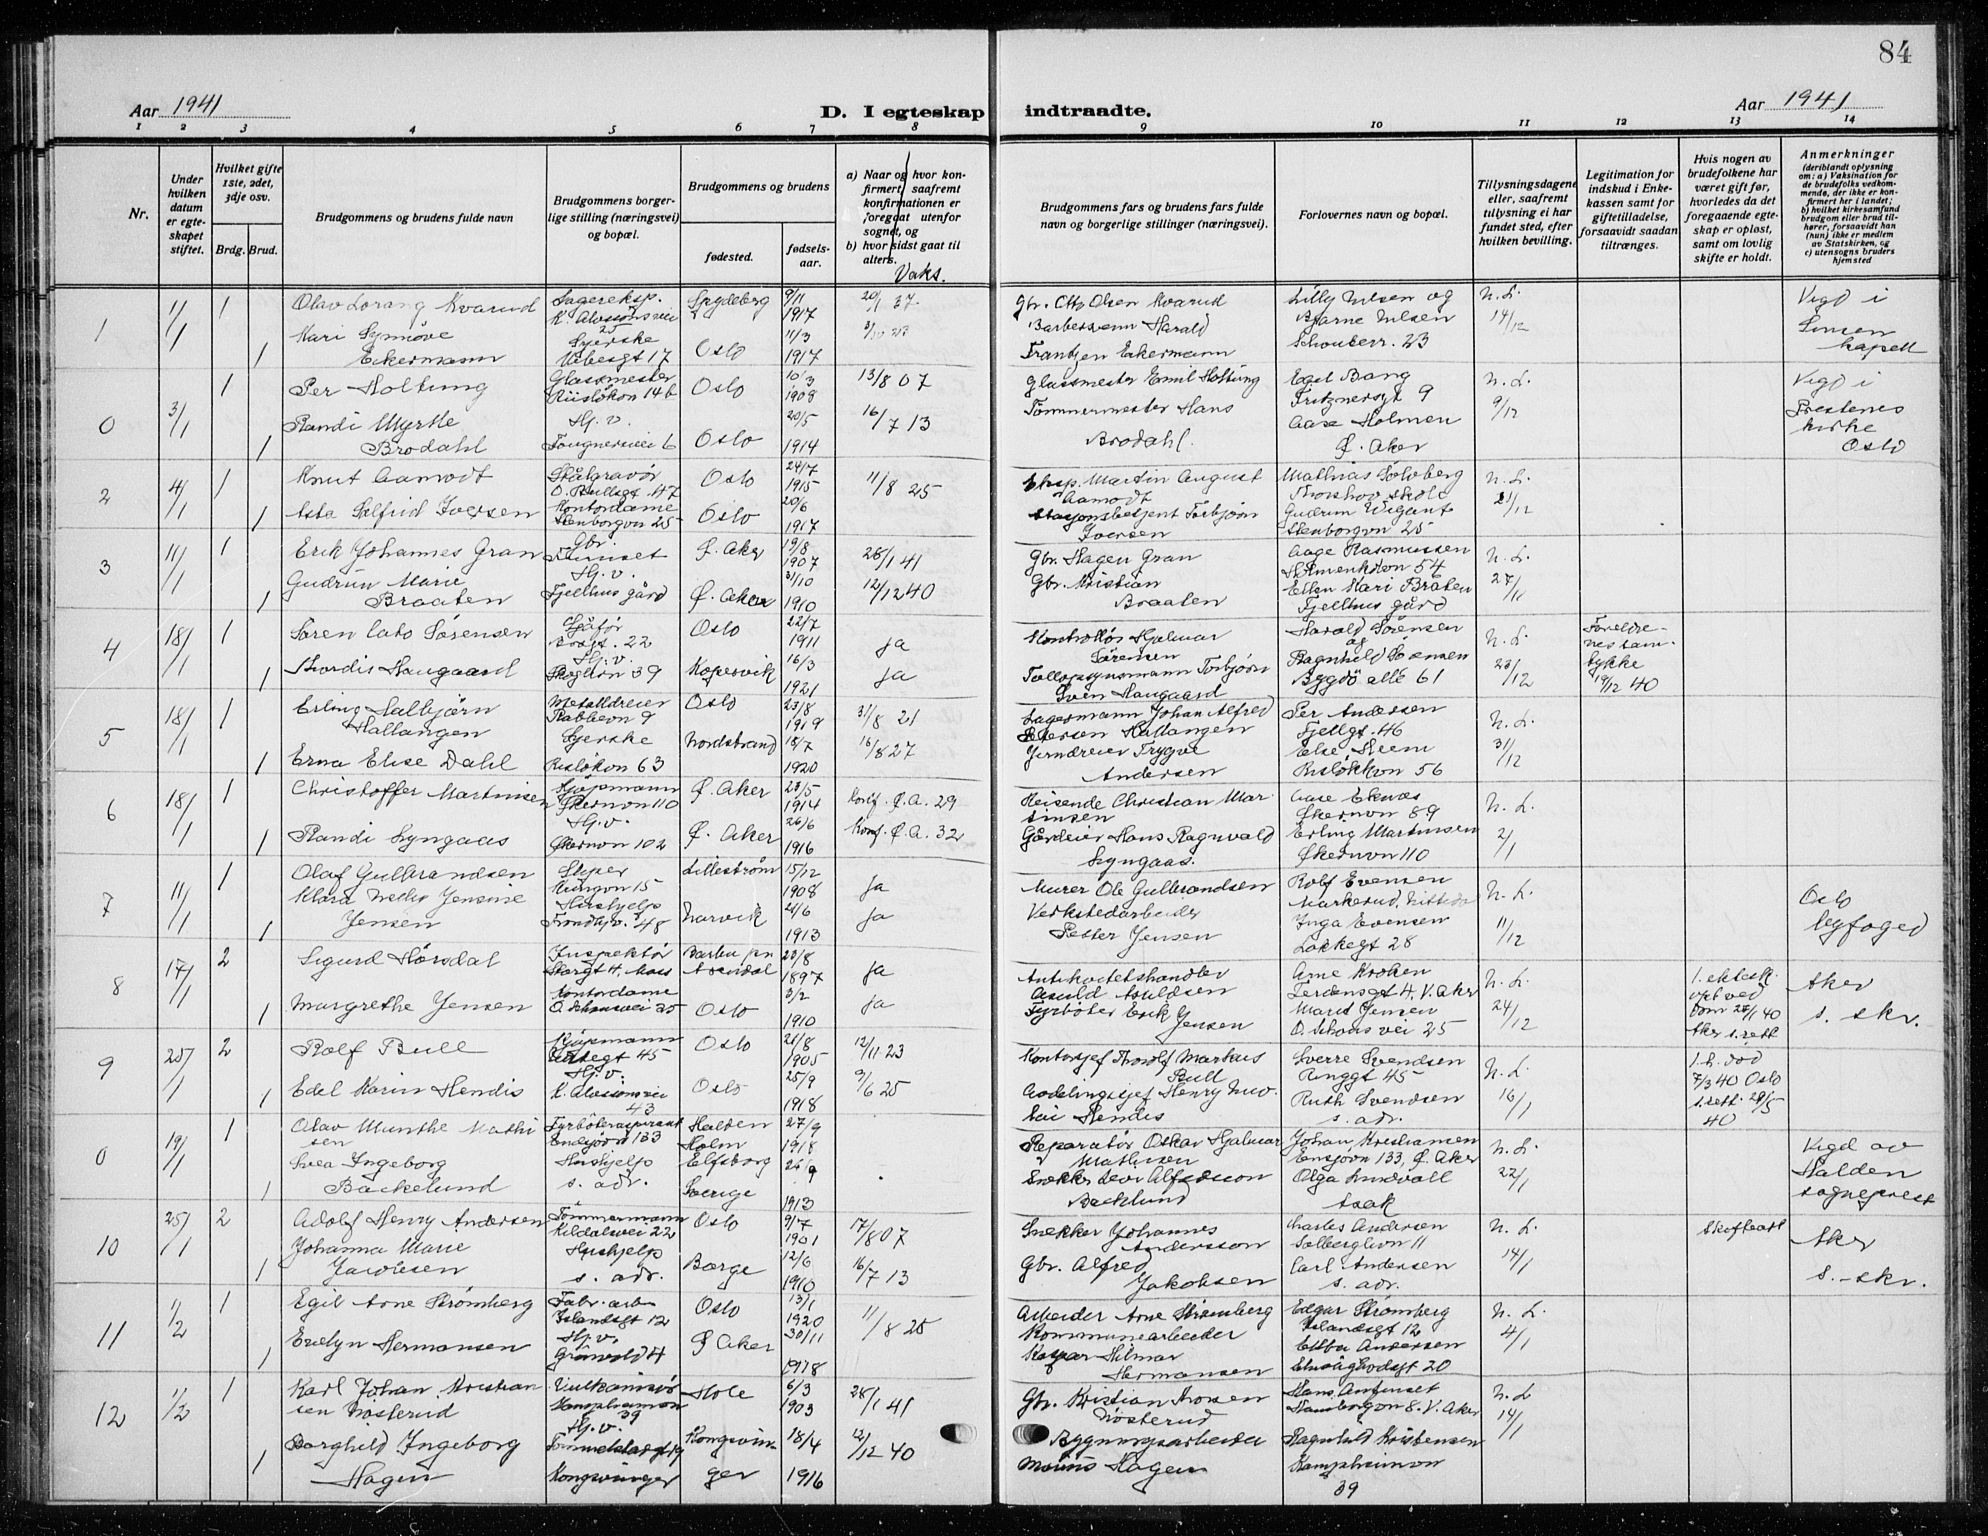 84
Aar 1941
D. I egteskap indtraadte.
Aar 1941
1 2 3 4 5 6 7 8 9 10 11 12 13 14
Nr.
Under hvilken datum er egteskapet stiftet.
Hvilket gifte 1ste, 2det, 3dje osv.
Brdg. Brud.
Brudgommens og brudens fulde navn
Brudgommens borgerlige stilling (næringsvei) og bopæl.
Brudgommens og brudens
fødested.
fødselsaar.
a) Naar og hvor konfirmert, saafremt konfirmationen er foregaat utenfor sognet, og
b) hvor sidst gaat til alters.
Vaks.
Brudgommens fars og brudens fars fulde navn og borgerlige stillinger (næringsvei).
Forlovernes navn og bopæl.
Tillysningsdagene eller, saafremt tillysning ei har fundet sted, efter hvilken bevilling.
Legitimation for indskud i Enkekassen samt for giftetilladelse, forsaavidt saadan tiltrænges.
Hvis nogen av brudefolkene har været gift før, hvorledes da det foregaaende egteskap er opløst, samt om lovlig skifte er holdt.
Anmerkninger
(deriblandt oplysning om: a) Vaksination for de brudefolks vedkommende, der ikke er konfirmert her i landet; b) hvilket kirkesamfund brudgom eller brud tilhører, forsaavidt han (hun) ikke er medlem av Statskirken, og c) utensogns bruders hjemsted
1 1/1 1 Olav Lorang Kvarud Lagereksp. K. Alvssonsvei 25 Spydeberg 9/11 1917 20/1 37. Gbr. Otto Olsen Kvarud Lilly Nilsen og Bjarne Nilsen N. L. 14/12 Vigd i Sinsen kapell
1 Mari Synnöve Eckermann Syerske Vibesgt 17 Oslo 11/3 1917 Barbersvenn Harald Frantzen Eckermann Schouterr. 23
0 3/1 1 Per Holtung Glassmester Riisløkon 14 b Oslo 10/3 1909 13/8 07 Glassmester Emil Holtung Egil Bang Fritznersgt 9 N. L. 9/12 Vigd i Prestenes kirke Oslo
1 Randi Myrtle Brodahl Hj. v. Tougnersvei 6 Oslo 20/5 1914 16/7 13 Tömmermester Hans Brodahl. Aase Holmen Ø. Aker
2 4/1 1 Knut Aamodt Stålgravör O. Bullsgt. 47 Oslo 24/7 1915 11/8 25 Eksp. Martin August Aamodt Mathias Solvberg Thorshov skole N. L. 21/12
1 Asta Solfrid Iversen Kontordame Stenborgvn 25 Oslo 20/6 1917 Stasjonsbetjent Torbjørn Iversen Gudrun Wigant Stenborgvn 25
3 11/1 1 Erik Johannes Gran Gbr. Ø. Aker 19/8 1907 26/1 41 Gbr. Hagen Gran Aage Rasmussen N. L. 27/11
1 Gudrun Marie Braaten Hj. v. Fjellhus gård Ø. Aker 31/10 1910 12/12 40 Gbr. Kristian Braaten Ellen Mari Bråten Fjellhus gård
4 18/1 1 Søren Cato Sørensen Sjåfør 22 Oslo 22/7 1911 ja Kontrollör Hjalmar Sørensen Harald Sørensen og N. L. 23/12 Foreldrenes samtykke 19/12 40
1 Thordis Haugaard Hj. v. Skoglivn 39 Kopervik 16/3 1921 ja Tollopsynsmann Torbjørn Sven Haugaard Ragnhild Sørensen Bygdö alle 61
5 18/1 1 Erling Salbjörn Hallangen Metalldreier 9 Oslo 23/8 1919 31/8 21 Lagermann Johan Alfred Petersen Hallangen Per Andersen Fjellgt. 46 N. L. 31/12
1 Erna Elise Dahl Syerske Risløkon 63 Nordstrand 18/7 1920 16/8 27 Jerndreier Trygve Andersen Else Steem Risløkkvn 56
6 18/1 1 Christoffer Martinsen Kjöpmann Økernvn 110 Ø. Aker 28/5 1914 Konf. Ø. A. 29 Reisende Christian Martinsen Aase Eknæs Økernvn 89 N. L. 2/1
1 Randi Lyngaas Hj. v. Økernvn 102 Ø. Aker 26/6 1916 Konf. Ø. A. 32 Gårdeier Hans Ragnvald Lyngaas. Erling Martinsen Økernvn 110
7 11/1 1 Olaf Gulbrandsen Sliper Ringvn 15 Lilleström 15/12 1908 ja Murer Ole Gulbrandsen Rolf Evensen Markerud, Nittedal N. L. 11/12 Oslo byfoged
1 Klara Nelly Jensine Jensen Hushjelp Trondhjv. 48 Narvik 24/6 1913 ja Verkstedarbeider Petter Jensen Inga Evensen Lakkegt 28
8 17/1 2 Sigurd Hörsdal Inspektör Storgt 4, Moss Barbu pr. Arendal 23/8 1897 ja Antikvitetshandler Asuld Asuldsen Arne Kroken Terdensgt 4, V. Aker N. L. 24/12 1. ektesk. opl. ved dom 25/1 40 Aker s. rett Aker s. skr.
1 Margrethe Jensen Kontordame O. Schousvei 25 Oslo 3/2 1910 ja Fyrböter Erik Jensen Marit Jensen O. Schous vei 25
9 25/1 2 Rolf Bull Kjöpmann 45 Oslo 21/8 1905 12/11 23 Kontorsjef Thorolf Markus Bull Sverre Svendsen Ringgt 45 N. L. 16/1 7/3 40 Oslo s. rett. 29/5 40
1 Edel Karin Hendis Hj. v. K. Alvssonsvei 43 Oslo 25/9 1918 9/6 25 Avdelingssjef Henry Nicolai Hendis Ruth Svendsen s. adr.
0 19/1 1 Olav Munthe Mathisen Fyrböteraspirant Ensjövn 133 Halden 27/9 1918 Reparatör Oskar Hjalmar Mathisen Johan Kristiansen Ensjovn 133, Ø. Aker N. L. 22/1 Vigd av Halden sogneprest
1 Svea Ingeborg Bäckelund Hushjelp s. adr. Holm Elfsborg Sverige 26/9 1913 Snekker Alfredsson Backlund Olga Lundvall Asak
10 25/1 2 Adolf Henry Andersen Tömmermann Kildalsvei 22 Oslo 9/7 1901 17/8 07 Snekker Johannes Andersson Charles Andersen Solberglivn 11 N. L. 14/1 Skifteatt Aker s. - skr.
1 Johanna Marie Jacobsen Hushjelp s. adr. Borge 12/6 1910 16/7 13 Gbr. Alfred Jakobsen Carl Andersen s. adr.
11 1/2 1 Egil Arne Strømberg Fabr. arb. Islandsgt 12 Oslo 13/1 1920 11/8 25 Arbeider Arne Strømberg Edgar Strömberg Islandsgt 12 N. L. 4/1
1 Evelyn Hermansen Hj. v. Grönvold 4 Ø Aker 30/11 1918 Kommunearbeider Kaspar Hilmar Hermansen Ebba Andersen 20
12 1/2 1 Karl Johan Kristiansen Nösterud Vulkanisør Kampheimvn 39 Hole 6/3 1903 28/1 41 Gbr. Kristian Nösterud 8. V. Aker N. L 14/1
1 Borghild Ingeborg Hagen Hj. v. Kongsvinger Kongsvinger 18/4 1916 12/12 40 Bygningsarbeider Hagen Ragnhild Kristensen Kampheimvn 39